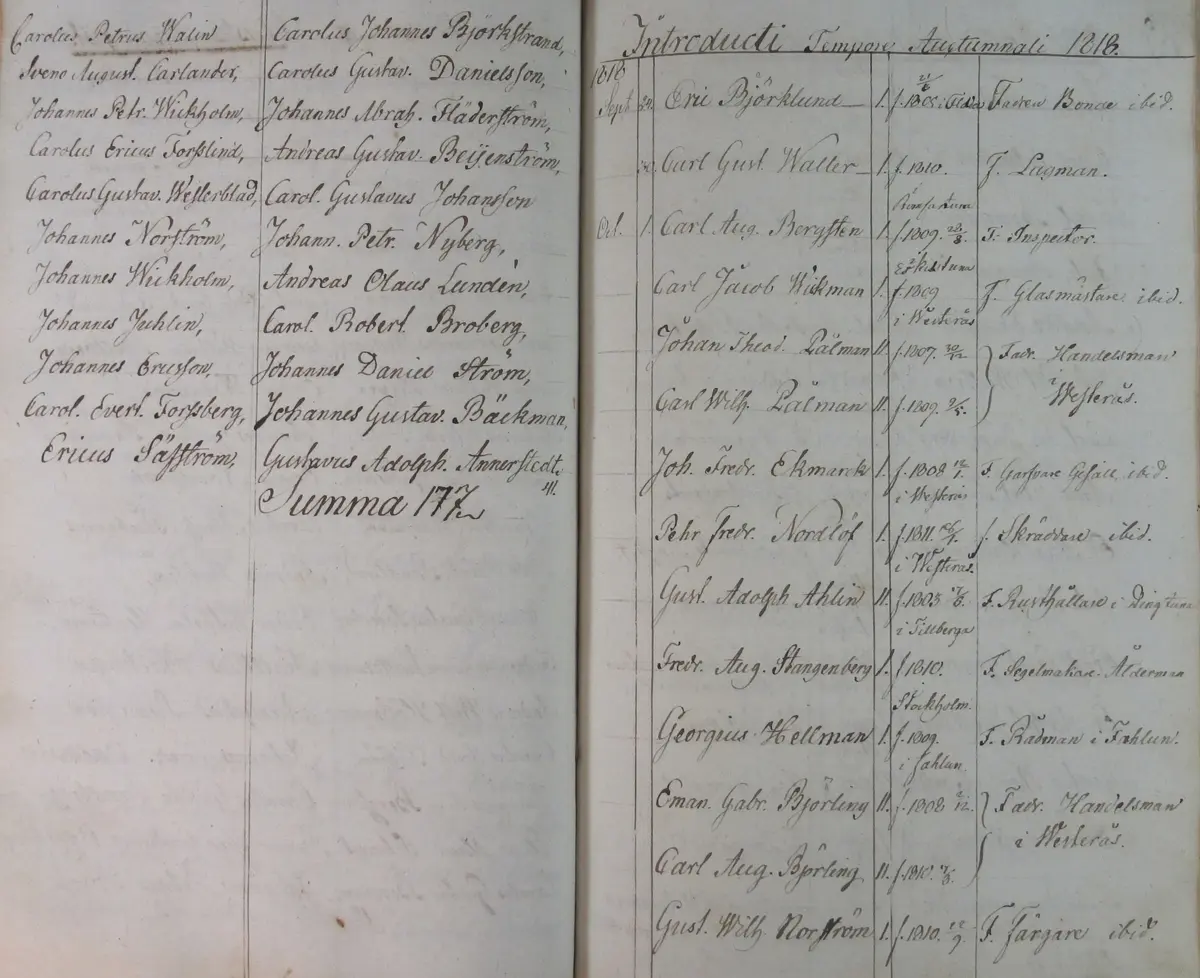 Carolus Petrus Walin
Sveno August. Carlander,
Johannes Petr. Wickholm,
Carolus Ericus Forsslind,
Carolus Gustav. Westerblad,
Johannes Norström,
Johannes Wickholm,
Johannes Jechlin,
Johannes Ericsson,
Carol. Evert. Forssberg,
Ericus Säfström,
Carolus Johannes Björkstrand,
Carolus Gustav. Danielsson,
Johannes Abrah. Fläderström,
Andreas Gustav. Beijenström,
Carol. Gustavus Johansson
Johann. Petr. Nyberg,
Andreas Olaus Lundén,
Carol. Robert. Broberg,
Johannes Daniel Ström,
Johannes Gustav. Bäckman,
Gustavus Adolph. Annerstedt.
41.
Summa 177
Introducti Tempore Auctumnali 1818.
1818
Sept. 22. Eric Björklund I. f. 1805. Fadren Bonde ibid.
30. Carl Gust. Waller I. f. 1810. F. Lagman.
Ramsartuna
Oct. 1. Carl Aug. Bergsten I. f. 1809. 23/8. F. Inspector.
Eskilstuna
Carl Jacob Wickman I. f. 1809 F. Glasmästare ibid.
i Westerås
Johan Theod. Pålman II. f. 1807. 30/12 Fadr. Handelsman
i Westerås.
Carl Wilh. Pålman II. f. 1809. 9/5.
Joh. Fredr. Ekmarck I. f. 1808 F. Garfvare Gesäll ibid.
i Westerås
Pehr Fredr. Nordlöf I. f. 1811. f. Skräddare ibid.
i Westerås.
Gust. Adolph Ahlin II. f. 1803 F. Rusthållare i Dingtuna
i Tillberga
Fredr. Aug. Stangenberg I. f. 1810. F. Segelmakare Ålderman
Stockholm.
Georgius Hellman I. f. 1809. F. Rådman i Fahlun.
i Fahlun.
Eman. Gabr. Björling II. f. 1808 Fadr. Handelsman
i Westerås.
Carl Aug. Björling II. f. 1810.
Gust. Wilh. Norström I. f. 1810. F. Färgare ibid.